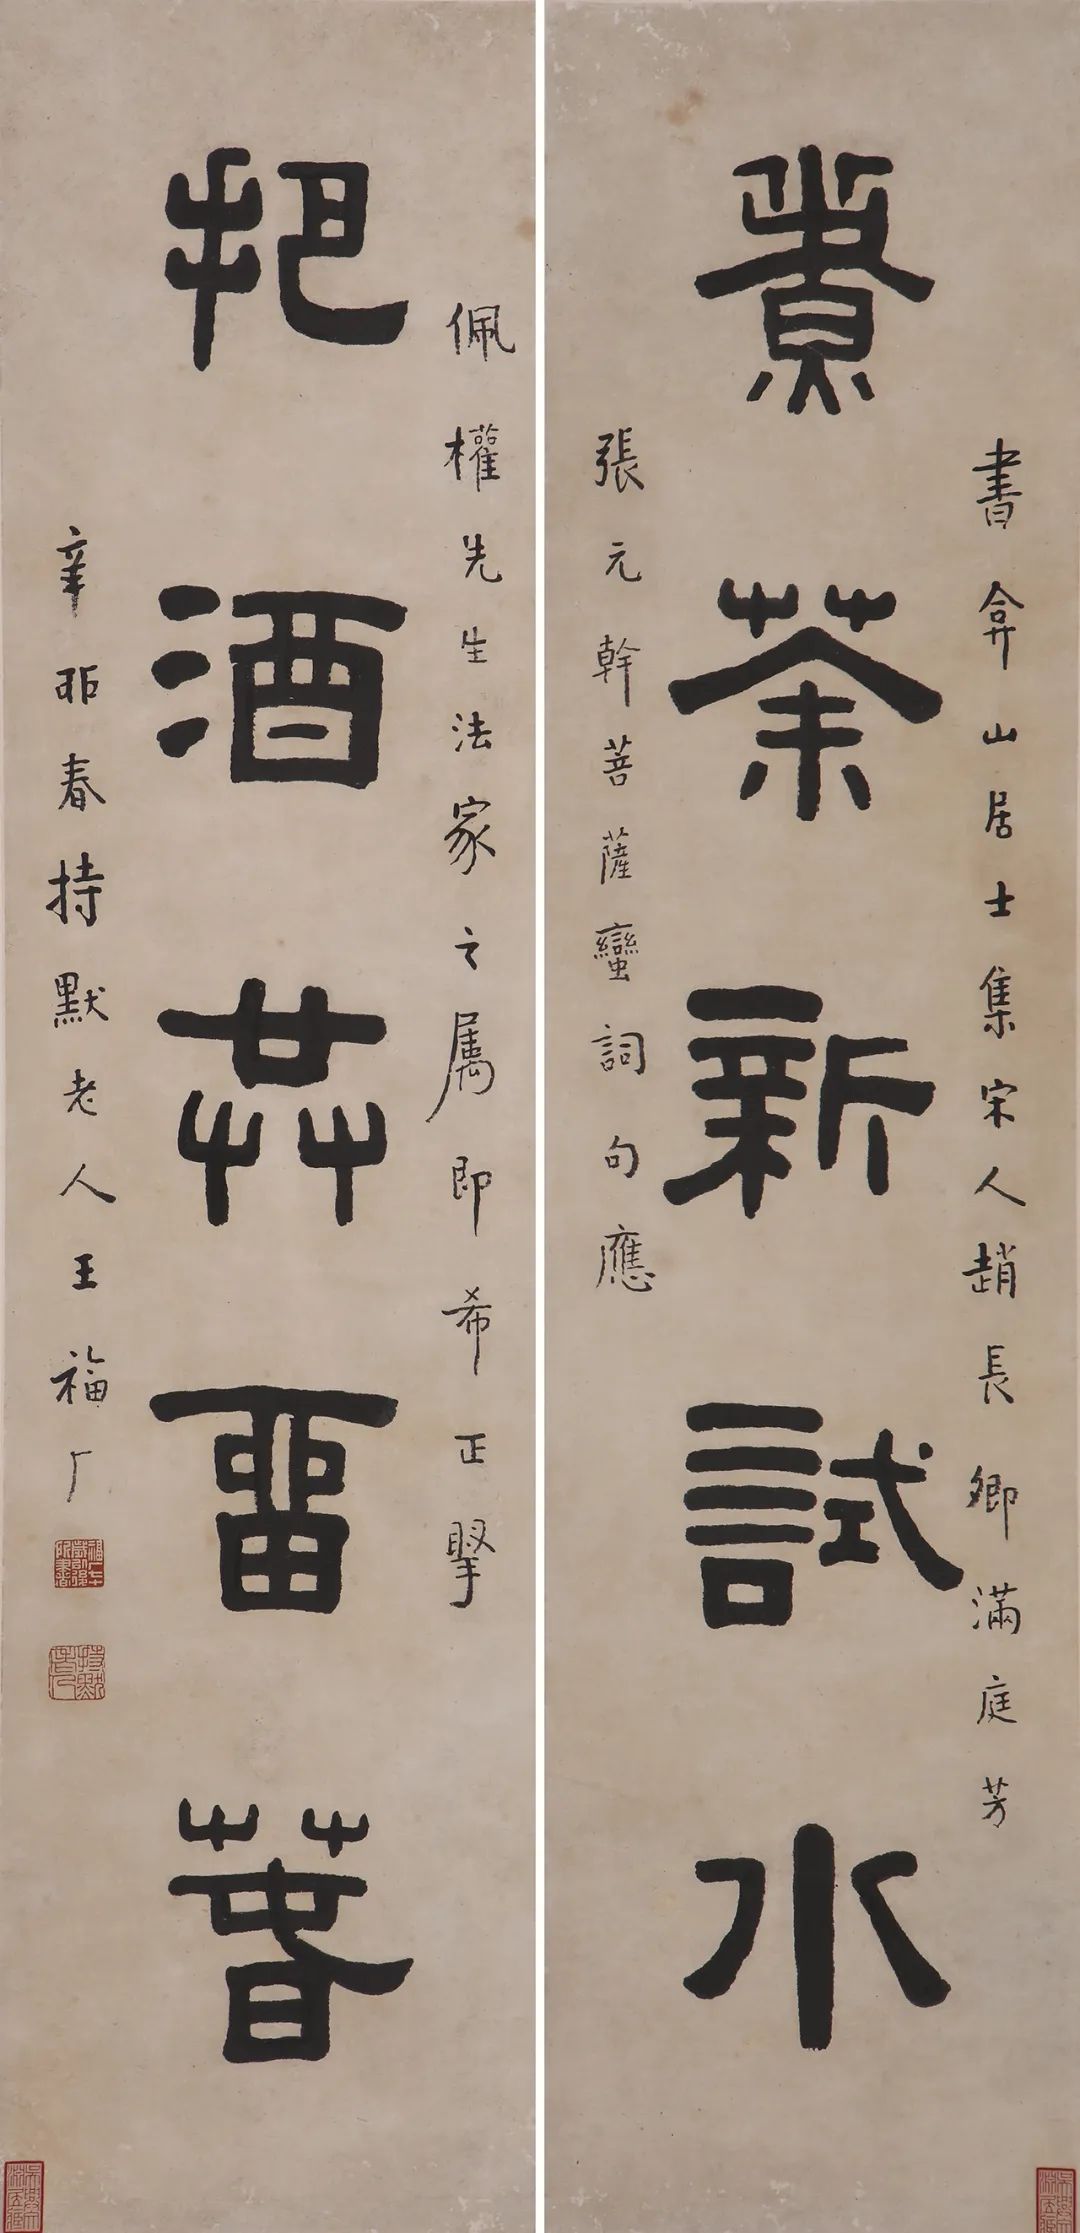 煑茶新試水
書弇山居士集宋人趙長卿滿庭芳
張元幹菩薩蠻詞句應
佩權先生法家之屬即希正掔
把酒共畱萅
辛丣春持默老人王福厂
持默老人